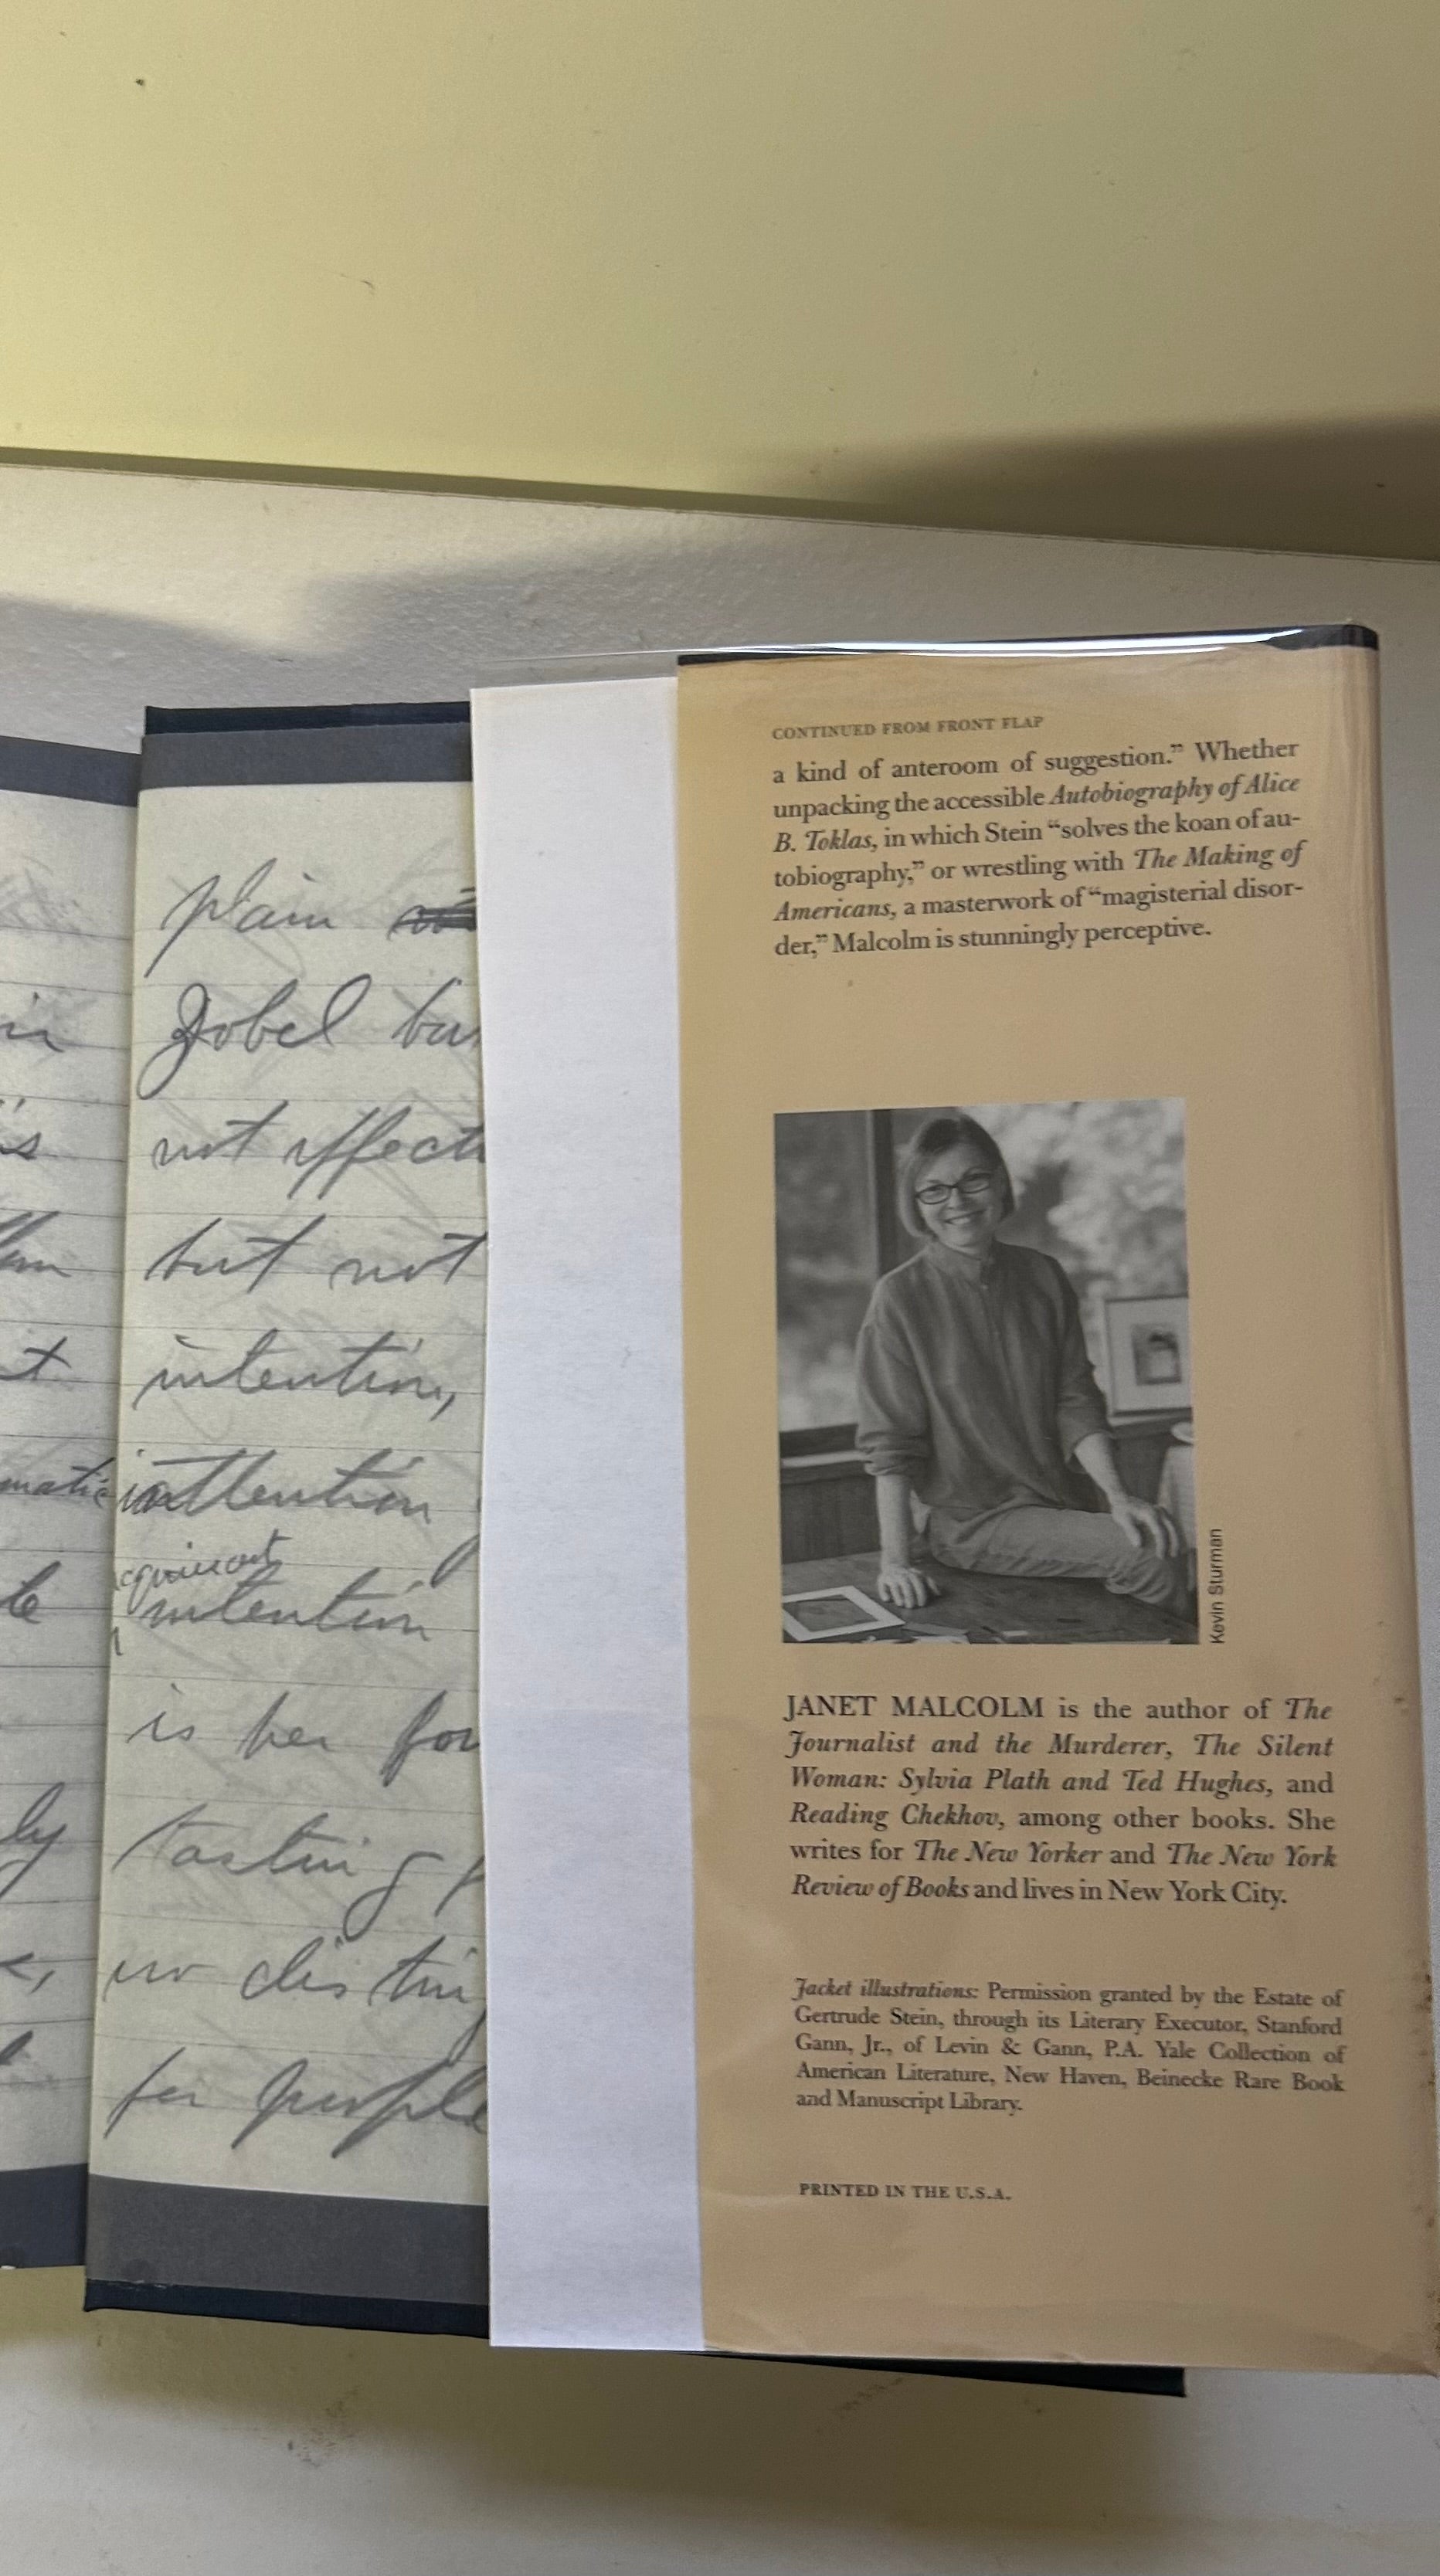 in
is
t
matic
le
ly
plain
Zobel
not
but not
intention,
inattention
intention
is her
tasting
no
for people
CONTINUED FROM FRONT FLAP
a kind of anteroom of suggestion.” Whether
unpacking the accessible Autobiography of Alice
B. Toklas, in which Stein “solves the koan of au-
tobiography,” or wrestling with The Making of
Americans, a masterwork of “magisterial disor-
der,” Malcolm is stunningly perceptive.
Kevin Sturman
JANET MALCOLM is the author of The
Journalist and the Murderer, The Silent
Woman: Sylvia Plath and Ted Hughes, and
Reading Chekhov, among other books. She
writes for The New Yorker and The New York
Review of Books and lives in New York City.
Jacket illustrations: Permission granted by the Estate of
Gertrude Stein, through its Literary Executor, Stanford
Gann, Jr., of Levin & Gann, P.A. Yale Collection of
American Literature, New Haven, Beinecke Rare Book
and Manuscript Library.
PRINTED IN THE U.S.A.